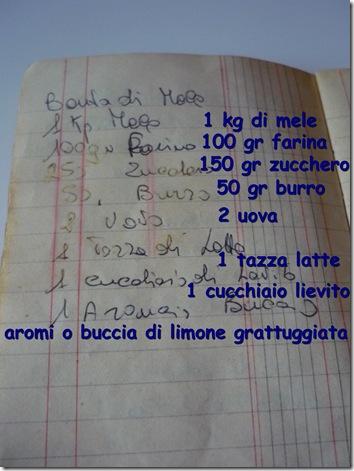 Bonta di Mele
1 Kg Mele
1 kg di mele
100 gr Farina
100 gr farina
Zucchero
150 gr zucchero
50, Burro
50 gr burro
2 Uova
2 uova
1 Tazza di Latte
1 tazza latte
1 di
1 cucchiaio lievito
1
aromi o buccia di limone grattuggiata